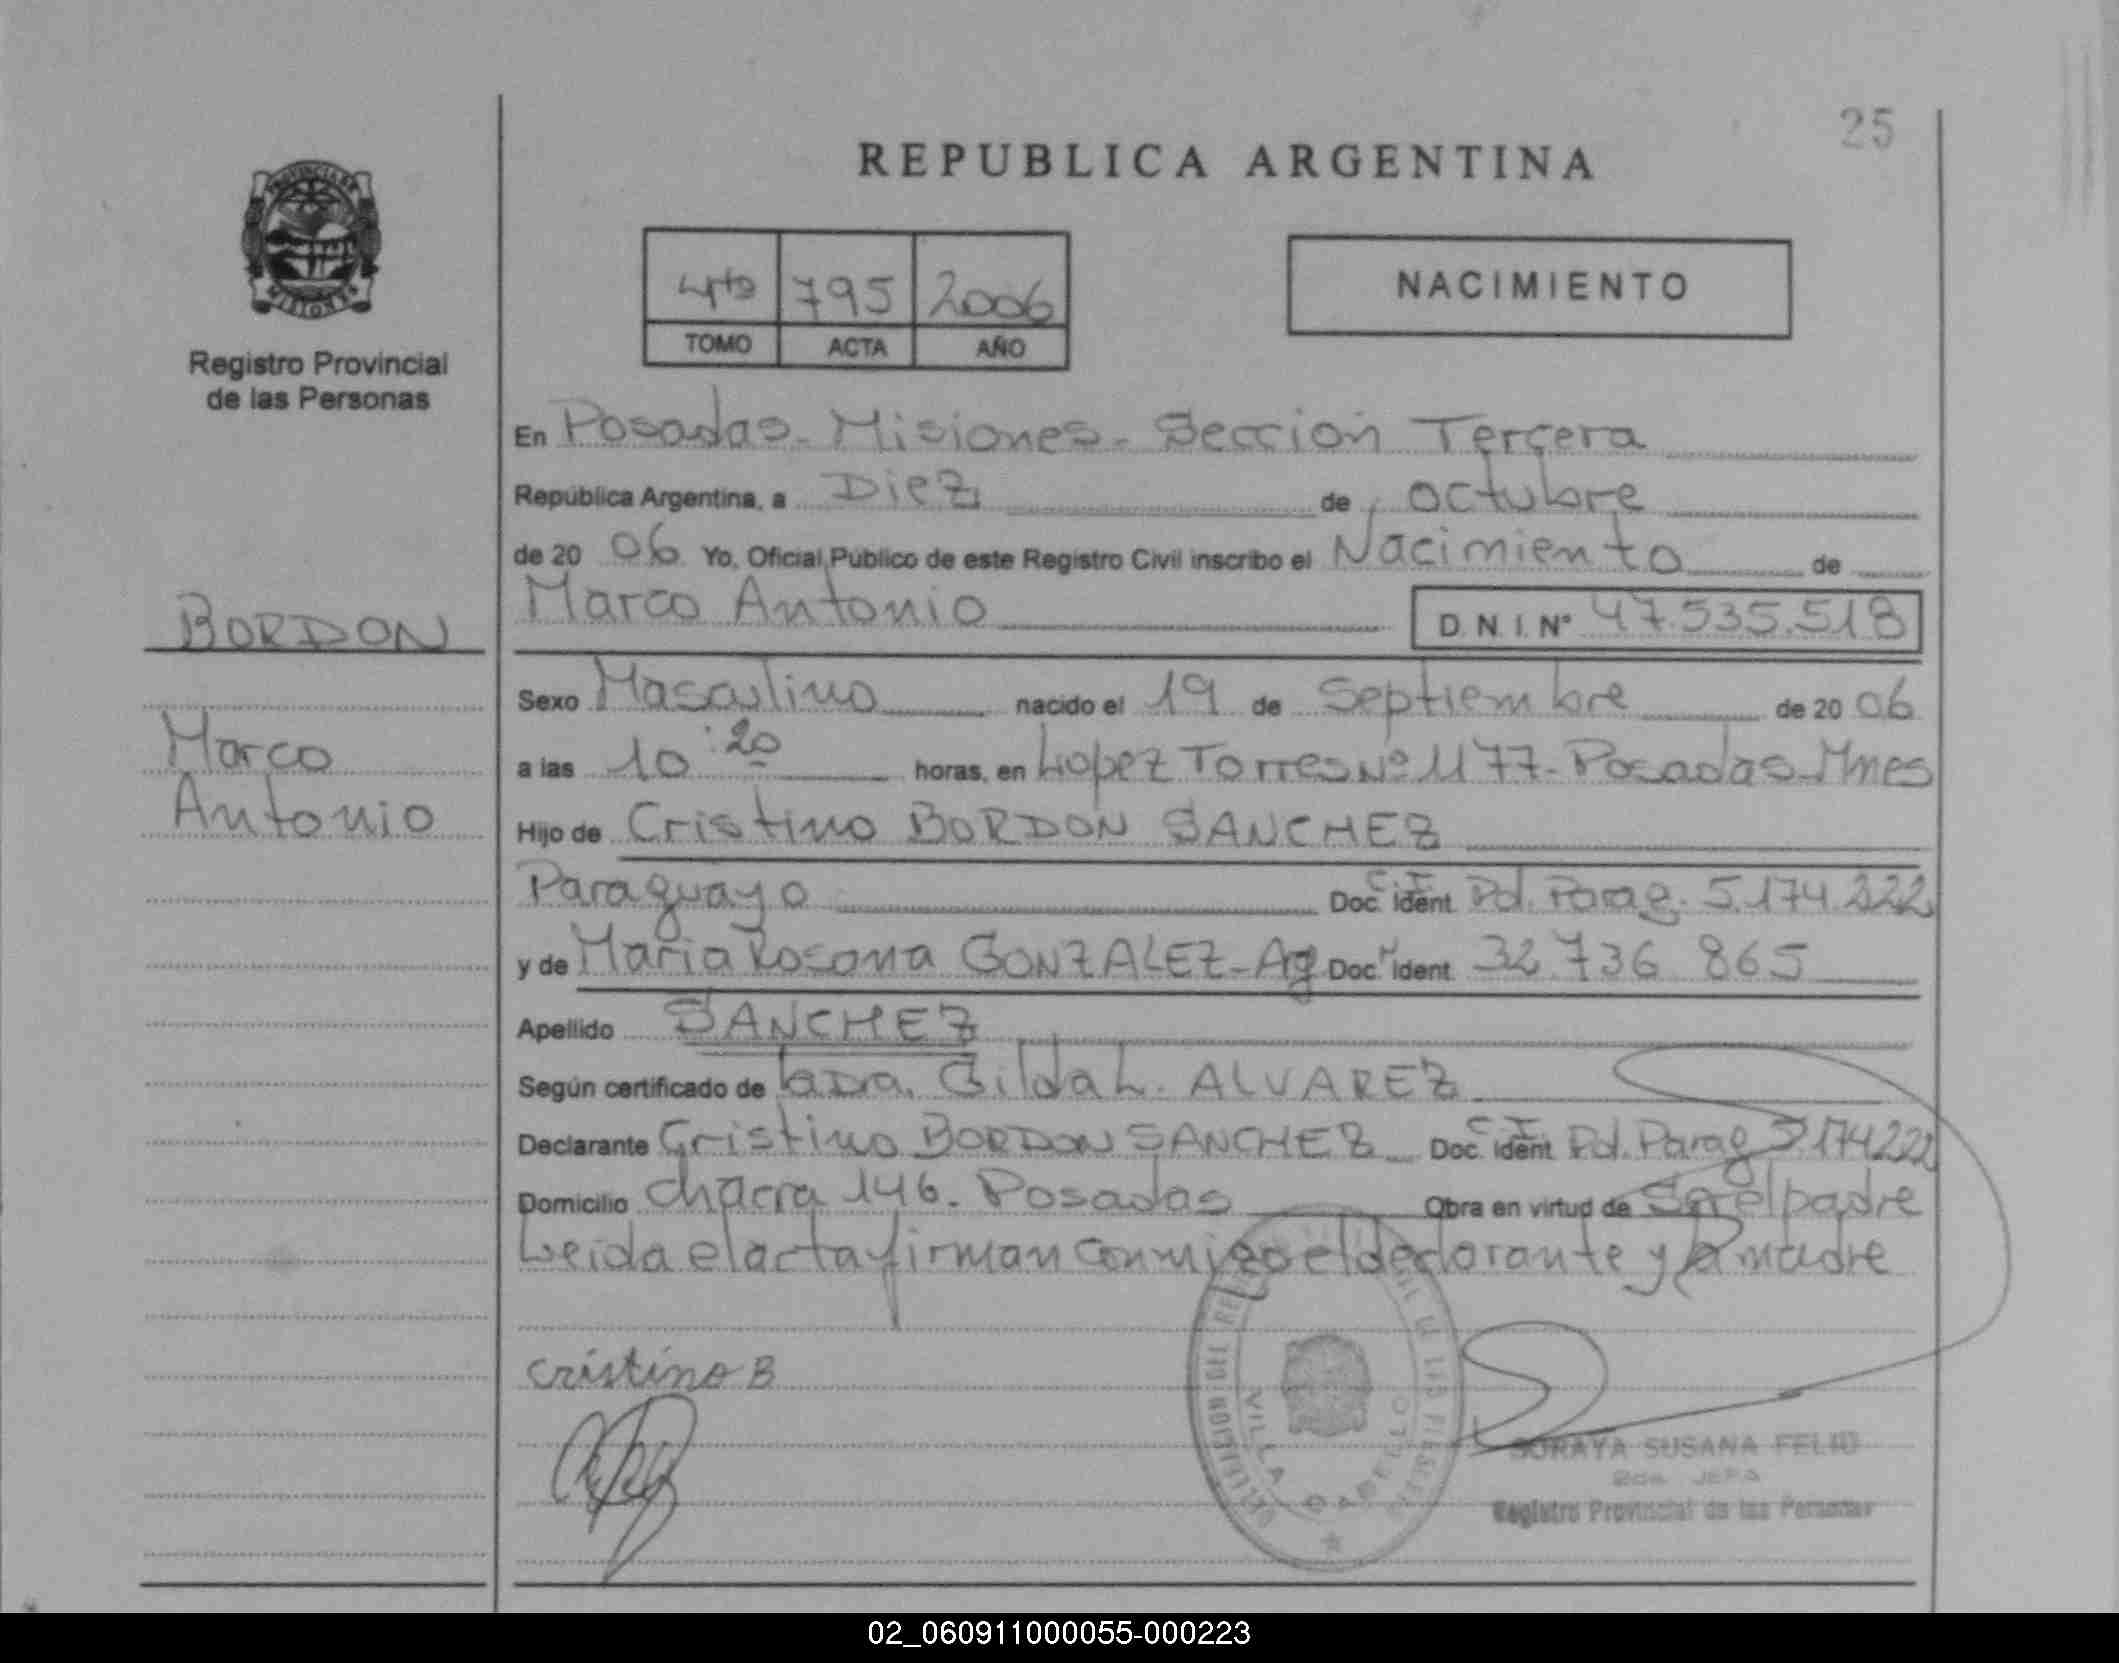 25
REPUBLICA ARGENTINA
4to 795 2006
TOMO ACTA AÑO
NACIMIENTO
PROVINCIA DE
MISIONES
Registro Provincial
de las Personas
En Posadas - Misiones - Sección Tercera
República Argentina, a Diez de octubre
de 20 06 Yo, Oficial Público de este Registro Civil inscribo el Nacimiento de
Marco Antonio D.N.I. Nº 47.535.518
BORDON
Marco
Antonio
Sexo Masculino nacido el 19 de Septiembre de 20 06
a las 10:20 horas, en Lopez Torres Nº 1177 - Posadas Mnes
Hijo de Cristino BORDON SANCHEZ
Paraguayo Doc. Ident. C.I. Pol. Parag. 5.174.222
y de Maria Rosana GONZALEZ - Ag Doc. Ident. 32 736 865
Apellido SANCHEZ
Según certificado de la Dra. Gilda L. ALVAREZ
Declarante Cristino BORDON SANCHEZ Doc. Ident. C.I. Pol. Parag 5.174222
Domicilio chacra 146. Posadas Obra en virtud de Ser el padre
Leida el acta firman conmigo el declarante y la madre
cristino B
DELEGACION DEL
VILLA CABELLO
SORAYA SUSANA FELIU
2da JEFA
Registro Provincial de las Personas
02_060911000055-000223